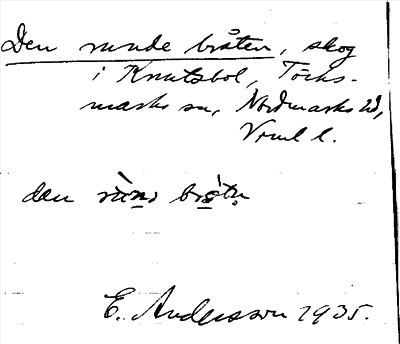 Den runde bråten, skog
i Knutsbol, Töcks-
marks sn, Nordmarks hd,
Vrml l.
dæn rùnə brǻtn̥
E. Andersson 1935.